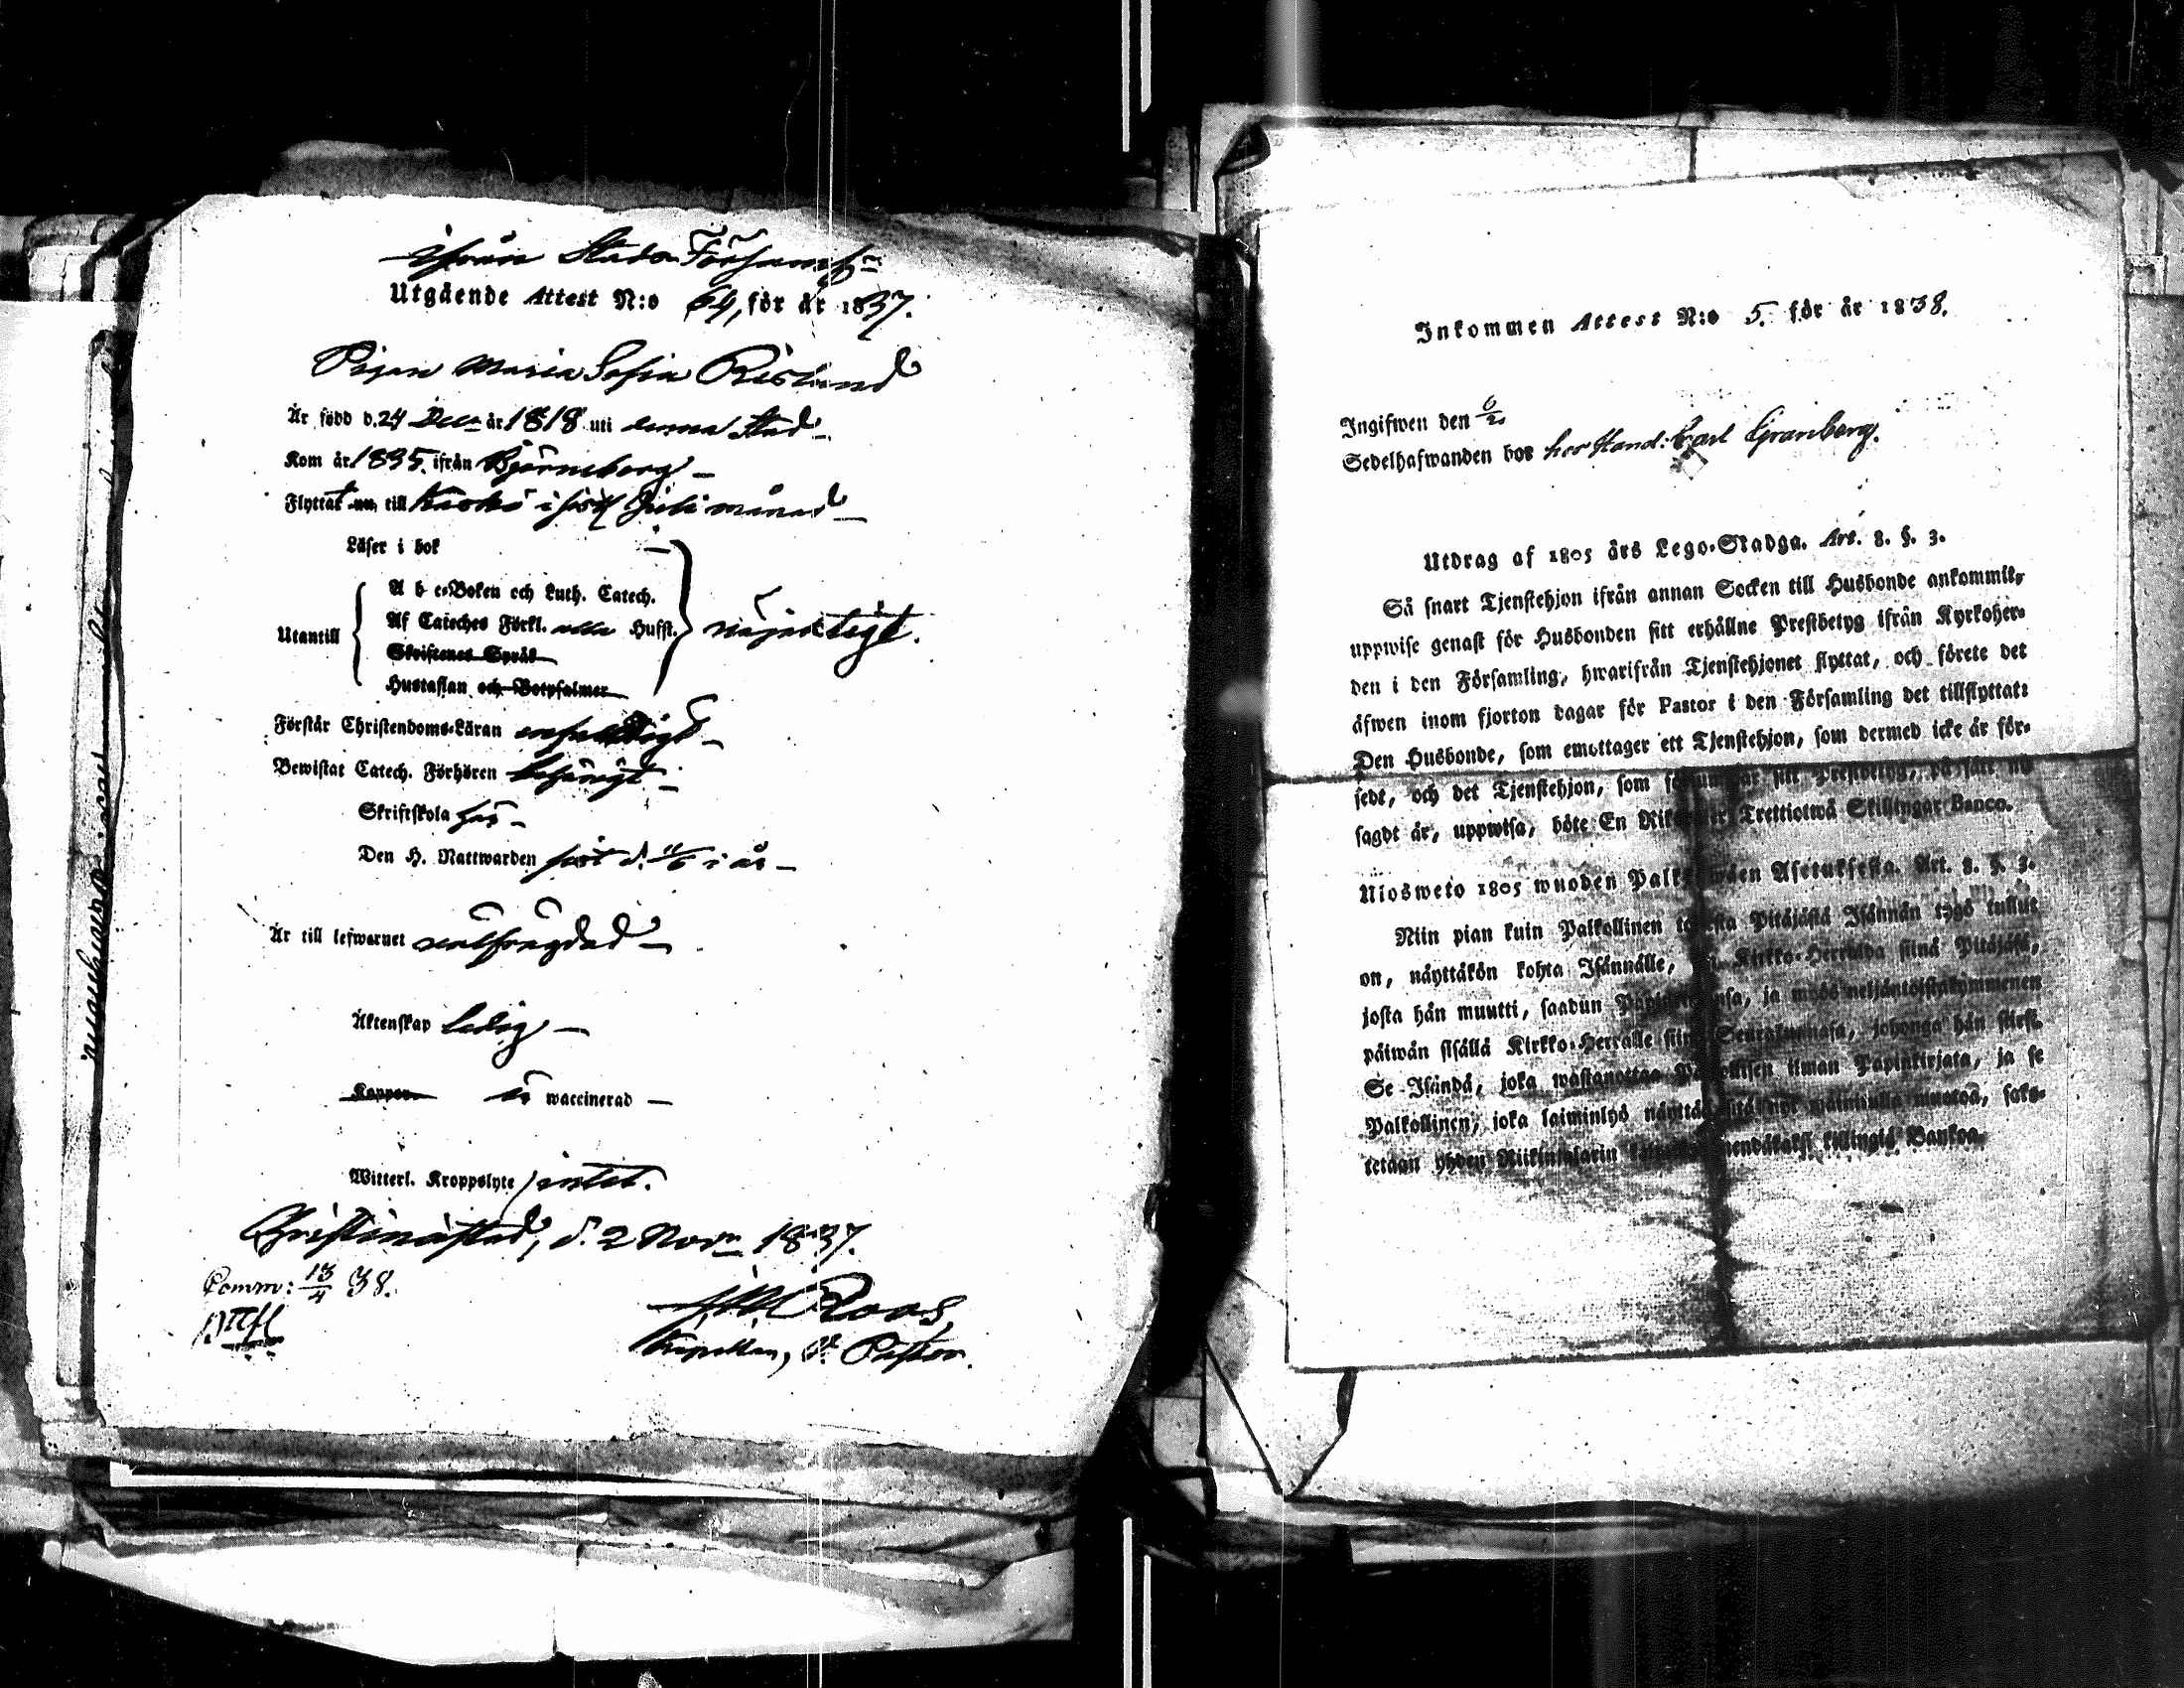 ifrån Stads Församl:n
Utgående Attest N:o 64, för år 1837.
Pigan Maria Sofia Röslund
Är född d. 24 Dec. år 1818 uti denna stad
Kom år 1835. ifrån Björneborg
Flyttat nu till Kaskö i sistl. Juli månad
Läser i bok
A b c-Boken och Luth. Catech.
Af Cateches Förkl. Husst.
Utantill nöjaktigt.
Skriftenes Språk
Hustaflan och Botpsalmer
Förstår Christendoms-Läran enfaldigt
Bewistat Catech. Förhören behörigt
Skriftskola här
Den H. Nattwarden sist d. 11/6 i år
Är till lefwernet wälfrägdad
Äktenskap ledig
Koppor är waccinerad
Witterl. Kroppslyte intet.
Christinæstad, d. 2 Nov. 1837.
Comm: 13/4 38.
Roos,
Kapellan, Pastor.
Inkommen Attest N:o 5. för år 1838.
Ingifwen den
Sedelhafwanden bor hos Hand: Carl Granberg.
Utdrag af 1805 års Lego-Stadga. Art. 8. §. 3.
Så snart Tjenstehjon ifrån annan Socken till Husbonde ankommit,
uppwise genast för Husbonden sitt erhållne Prestbetyg ifrån Kyrkoher-
den i den Församling, hwarifrån Tjenstehjonet flyttat, och förete det
äfwen inom fjorton dagar för Pastor i den Församling det tillflyttat:
Den Husbonde, som emottager ett Tjenstehjon, som dermed icke är för-
sedt, och det Tjenstehjon, som försummar sitt Prestbetyg, på sätt nu
sagdt är, uppwisa, böte En Riksdaler Trettiotwå Skillingar Banco.
Ulosweto 1805 wuoden Asetuksesta. Art. 8. §. 3.
Niin pian kuin Palkollinen toisesta Pitäjästä Isännän tygö tullut
on, näyttäkön kohta Isännälle, Kirkko-Herralda siinä Pitäjäsä,
josta hän muutti, saadun Papinkirjansa, ja myös neljäntoistakymmenen
päiwän sisällä Kirkko-Herralle siinä Seurakunnasa, johonga hän siirsi.
Se Isändä, joka wastanottaa Palkollisen ilman Papinkirjata, ja se
Palkollinen, joka laiminlyö näyttää sitä nyt mainitulla muotoa, sako-
tetaan yhden Riikintalarin killingiä Bankoa.